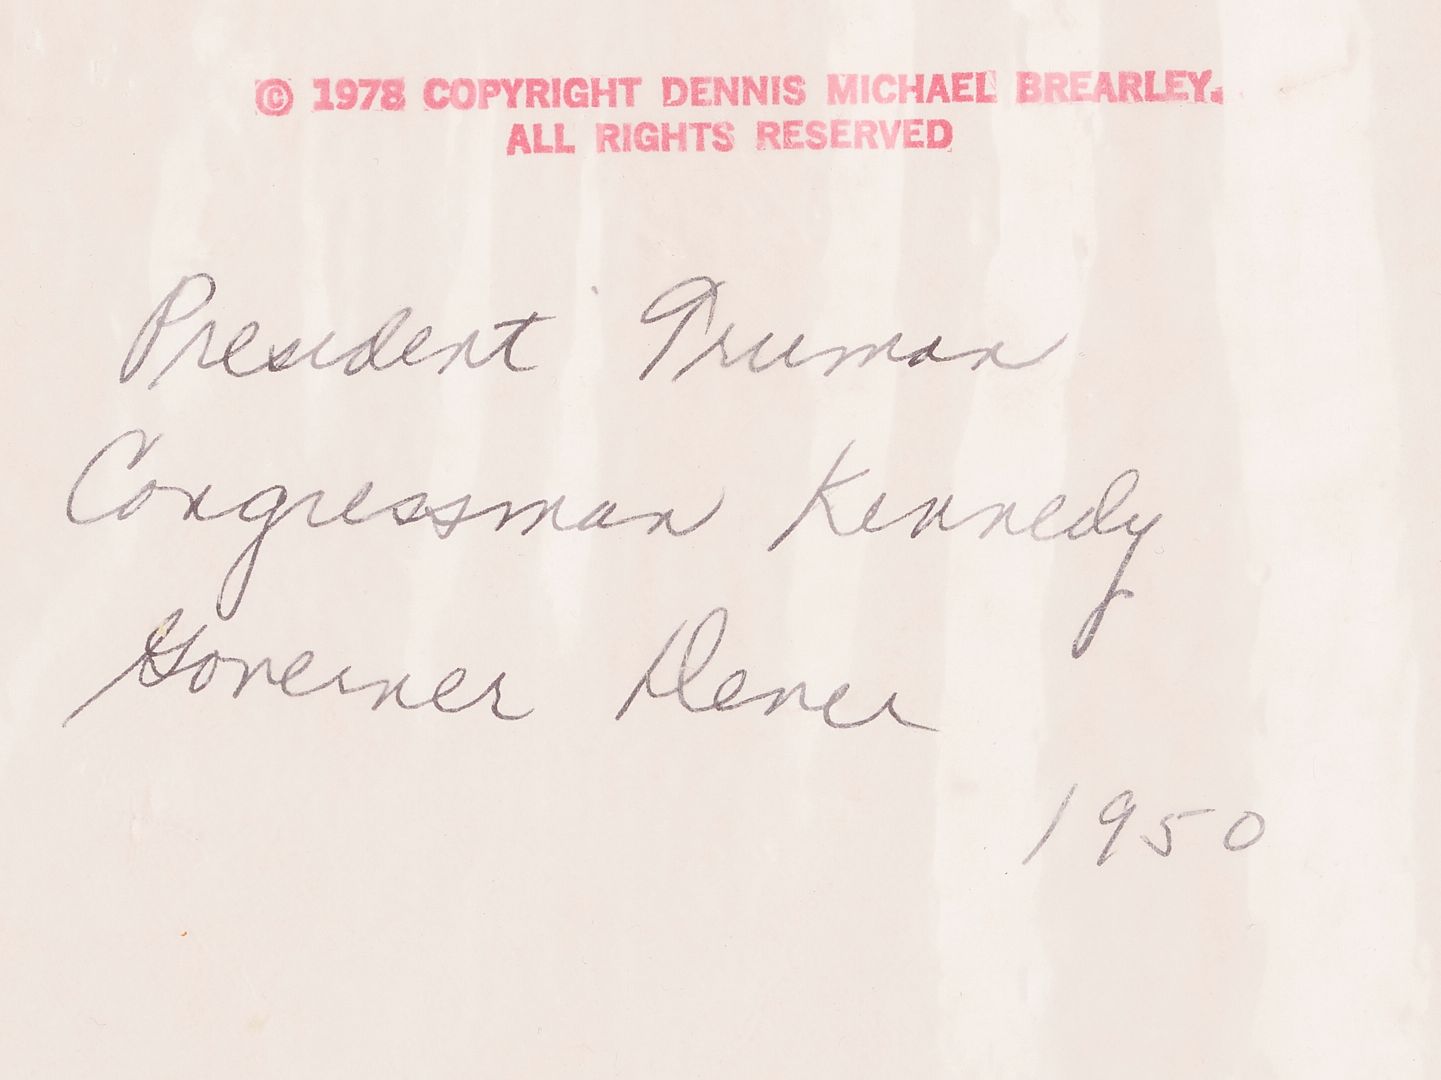 © 1978 COPYRIGHT DENNIS MICHAEL BREARLEY.
ALL RIGHTS RESERVED
President Truman
Congressman Kennedy
Governer Dever
1950